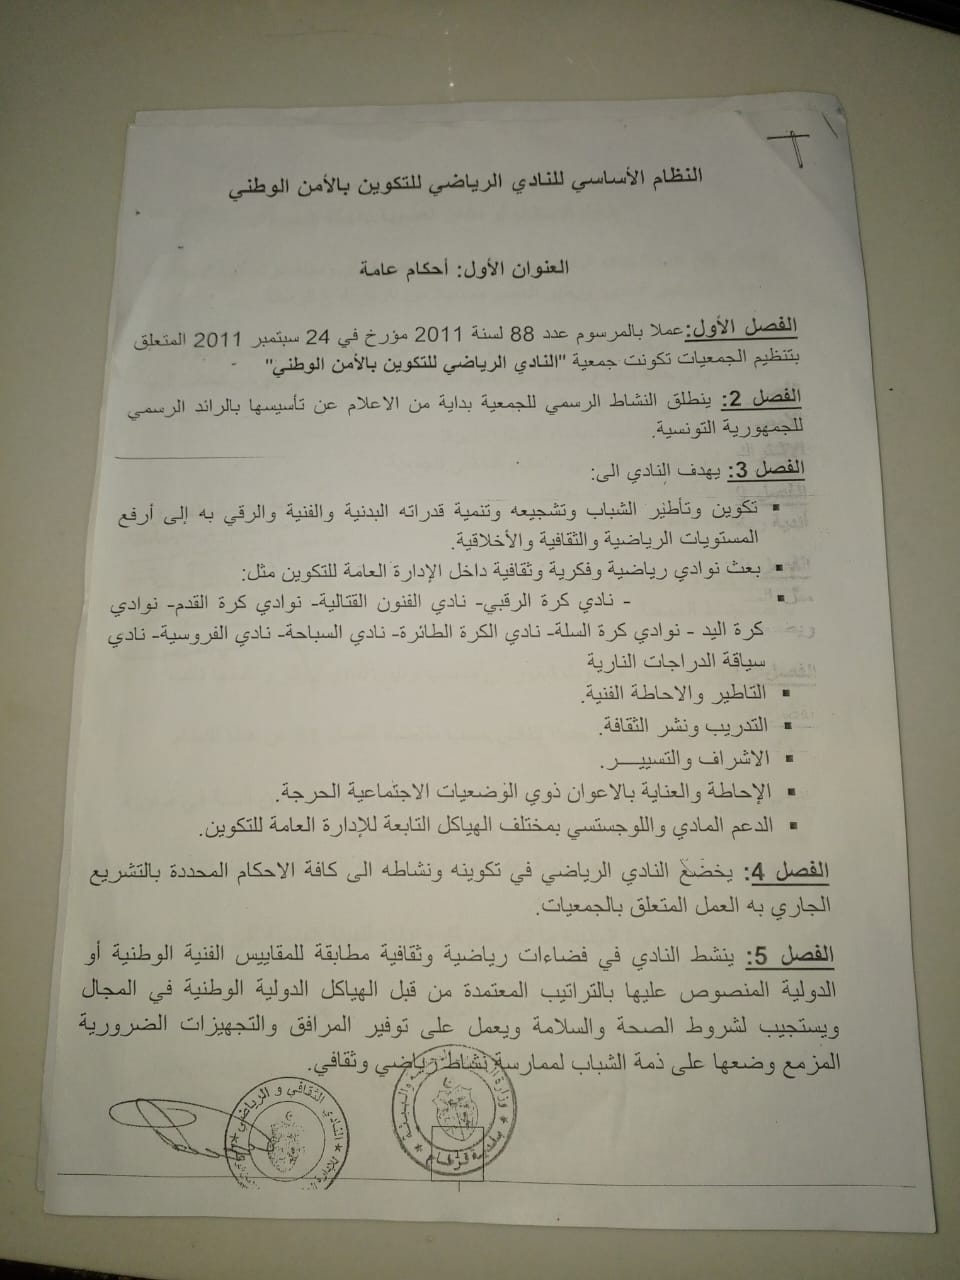 النظام الأساسي للنادي الرياضي للتكوين بالأمن الوطني
العنوان الأول: أحكام عامة
الفصل الأول: عملا بالمرسوم عدد 88 لسنة 2011 مؤرخ في 24 سبتمبر 2011 المتعلق
بتنظيم الجمعيات تكونت جمعية "النادي الرياضي للتكوين بالأمن الوطني"
الفصل 2: ينطلق النشاط الرسمي للجمعية بداية من الاعلام عن تأسيسها بالرائد الرسمي
للجمهورية التونسية.
الفصل 3: يهدف النادي الى:
▪ تكوين وتأطير الشباب وتشجيعه وتنمية قدراته البدنية والفنية والرقي به إلى أرفع
المستويات الرياضية والثقافية والأخلاقية.
▪ بعث نوادي رياضية وفكرية وثقافية داخل الإدارة العامة للتكوين مثل:
▪ - نادي كرة الرقبي- نادي الفنون القتالية- نوادي كرة القدم- نوادي
كرة اليد - نوادي كرة السلة- نادي الكرة الطائرة- نادي السباحة- نادي الفروسية- نادي
سياقة الدراجات النارية
▪ التاطير والاحاطة الفنية.
▪ التدريب ونشر الثقافة.
▪ الاشراف والتسييـــر.
▪ الإحاطة والعناية بالاعوان ذوي الوضعيات الاجتماعية الحرجة.
▪ الدعم المادي واللوجستسي بمختلف الهياكل التابعة للإدارة العامة للتكوين.
الفصل 4: يخضع النادي الرياضي في تكوينه ونشاطه الى كافة الاحكام المحددة بالتشريع
الجاري به العمل المتعلق بالجمعيات.
الفصل 5: ينشط النادي في فضاءات رياضية وثقافية مطابقة للمقاييس الفنية الوطنية أو
الدولية المنصوص عليها بالتراتيب المعتمدة من قبل الهياكل الدولية الوطنية في المجال
ويستجيب لشروط الصحة والسلامة ويعمل على توفير المرافق والتجهيزات الضرورية
المزمع وضعها على ذمة الشباب لممارسة نشاط رياضي وثقافي.
النادي الثقافي و الرياضي
بلدية قرطاج